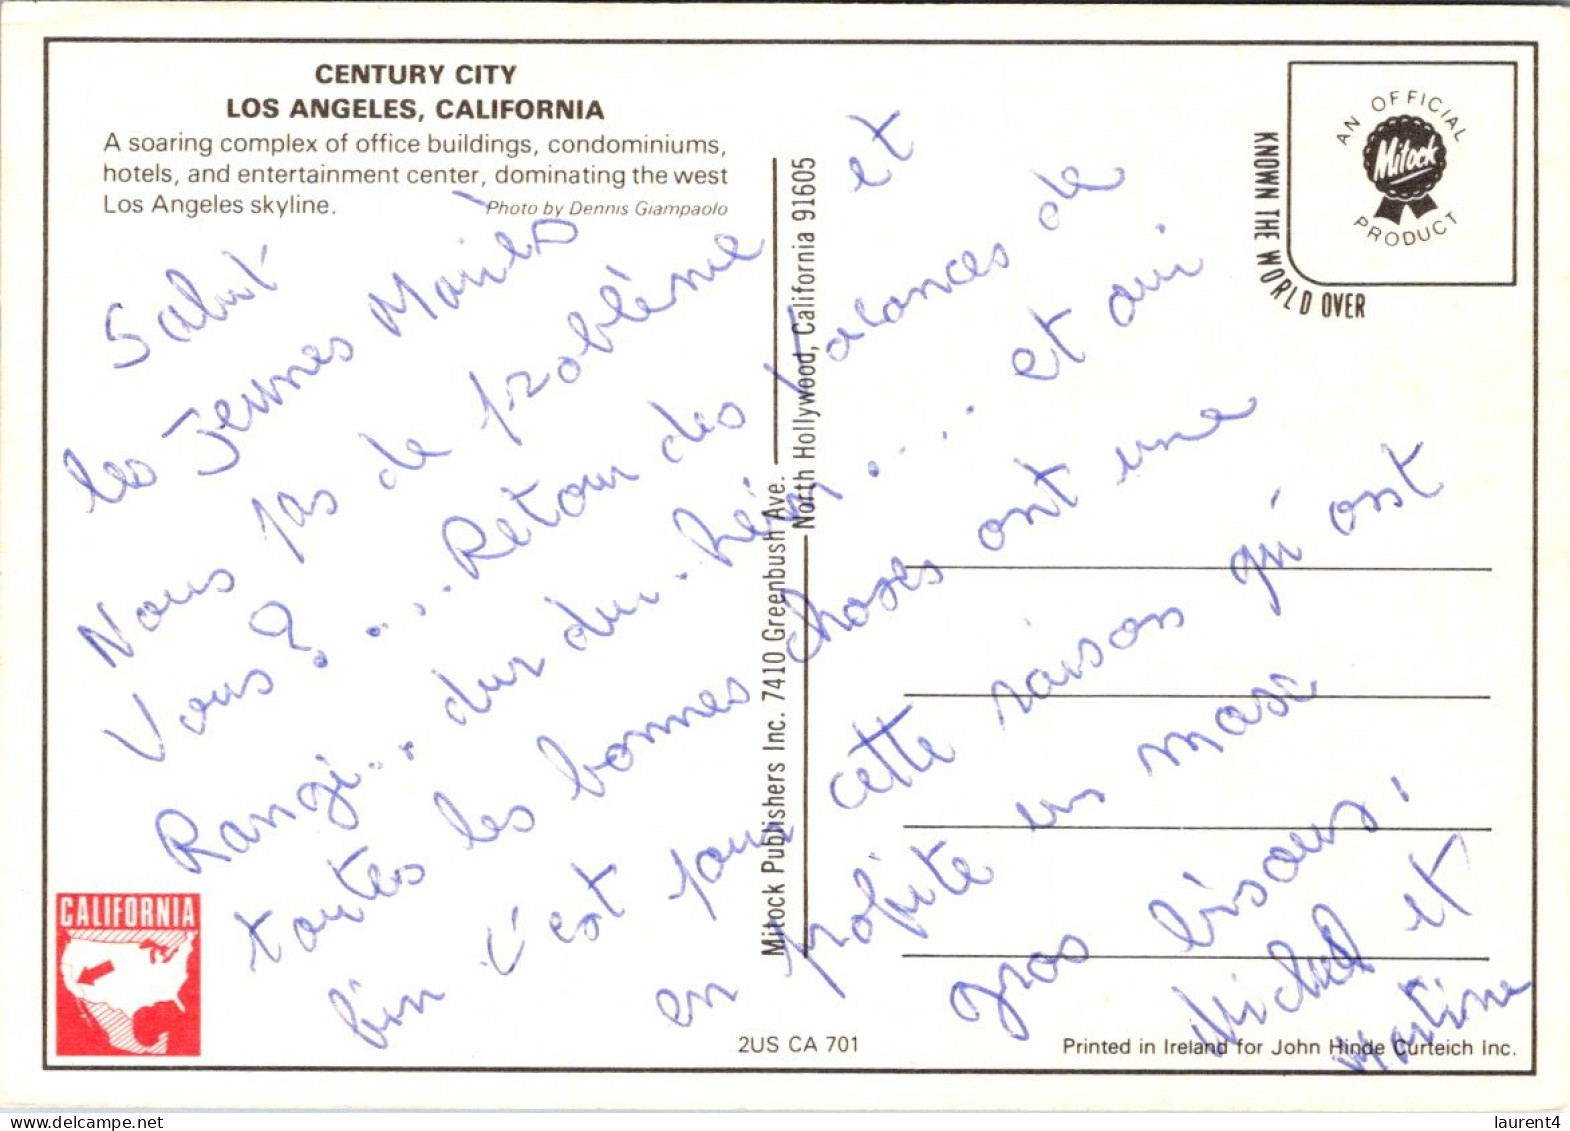 CENTURY CITY
LOS ANGELES, CALIFORNIA
A soaring complex of office buildings, condominiums,
hotels, and entertainment center, dominating the west
Los Angeles skyline.
Photo by Dennis Giampaolo
Salut
les Jeunes Mariés
Nous pas de problème et
Vous? ... Retour des Vacances de
Rangi... dur dur. Rém.... et oui
toutes les bonnes choses ont une
fin c'est pour cette raison qu'ont
en profite un max
gros bisous!
Michel et
Martine
Mitock Publishers Inc. 7410 Greenbush Ave.
North Hollywood, California 91605
AN OFFICIAL
Mitock
PRODUCT
KNOWN THE WORLD OVER
CALIFORNIA
2US CA 701
Printed in Ireland for John Hinde Curteich Inc.
laurent4